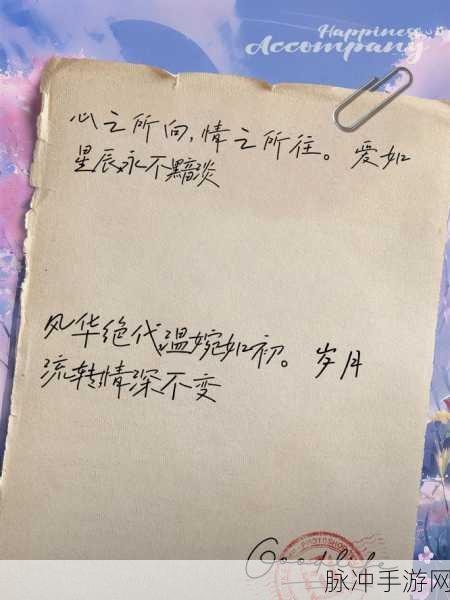 Happiness
Accompany
心之所向,情之所往。爱如
星辰永不黯淡
风华绝代,温婉如初。岁月
流转情深不变
Good life
PHOTOSHOP
脉冲手游网